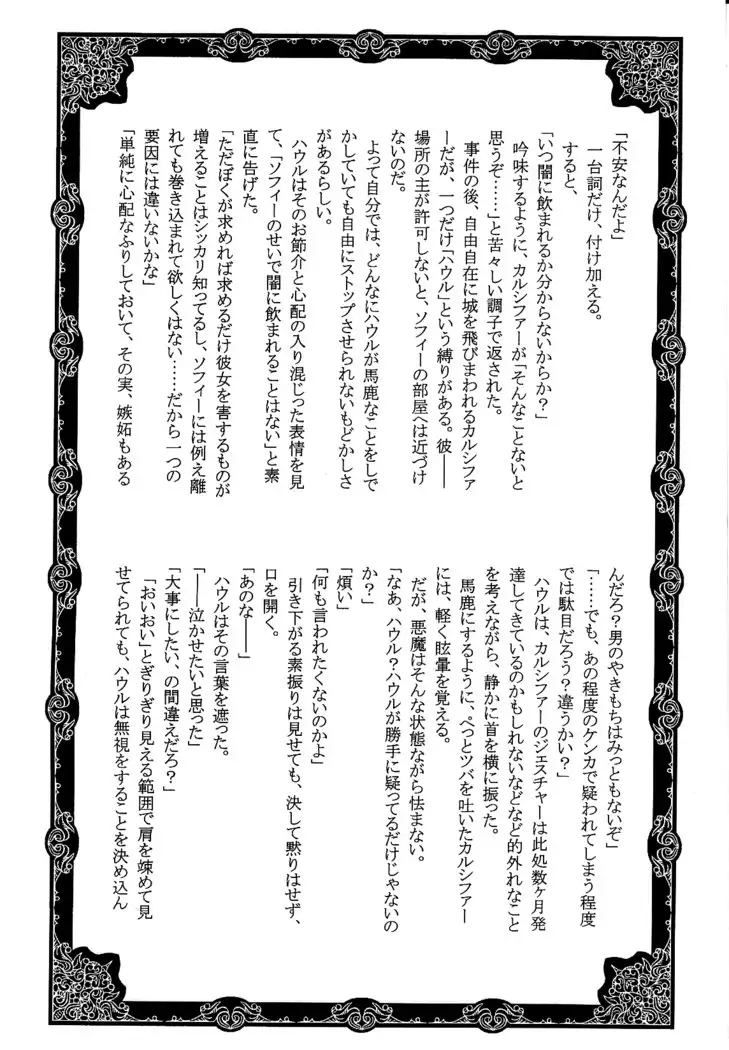 「不安なんだよ」
　一台詞だけ、付け加える。
　すると、
「いつ闇に飲まれるか分からないからか？」
　吟味するように、カルシファーが「そんなことないと
思うぞ……」と苦々しい調子で返された。
　事件の後、自由自在に城を飛びまわれるカルシファ
ーだが、一つだけ「ハウル」という縛りがある。彼――
場所の主が許可しないと、ソフィーの部屋へは近づけ
ないのだ。
　よって自分では、どんなにハウルが馬鹿なことをしで
かしていても自由にストップさせられないもどかしさ
があるらしい。
　ハウルはそのお節介と心配の入り混じった表情を見
て、「ソフィーのせいで闇に飲まれることはない」と素
直に告げた。
「ただぼくが求めれば求めるだけ彼女を害するものが
増えることはシッカリ知ってるし、ソフィーには例え離
れても巻き込まれて欲しくはない……だから一つの
要因には違いないかな」
「単純に心配なふりしておいて、その実、嫉妬もある
んだろ？男のやきもちはみっともないぞ」
「……でも、あの程度のケンカで疑われてしまう程度
では駄目だろう？違うかい？」
　ハウルは、カルシファーのジェスチャーは此処数ヶ月発
達してきているのかもしれないなどなど的外れなこと
を考えながら、静かに首を横に振った。
　馬鹿にするように、ぺっとツバを吐いたカルシファー
には、軽く眩暈を覚える。
　だが、悪魔はそんな状態ながら怯まない。
「なあ、ハウル？ハウルが勝手に疑ってるだけじゃないの
か？」
「煩い」
「何も言われたくないのかよ」
　引き下がる素振りは見せても、決して黙りはせず、
口を開く。
「あのな――」
　ハウルはその言葉を遮った。
「――泣かせたいと思った」
「大事にしたい、の間違えだろ？」
　「おいおい」とぎりぎり見える範囲で肩を竦めて見
せてられても、ハウルは無視をすることを決め込ん